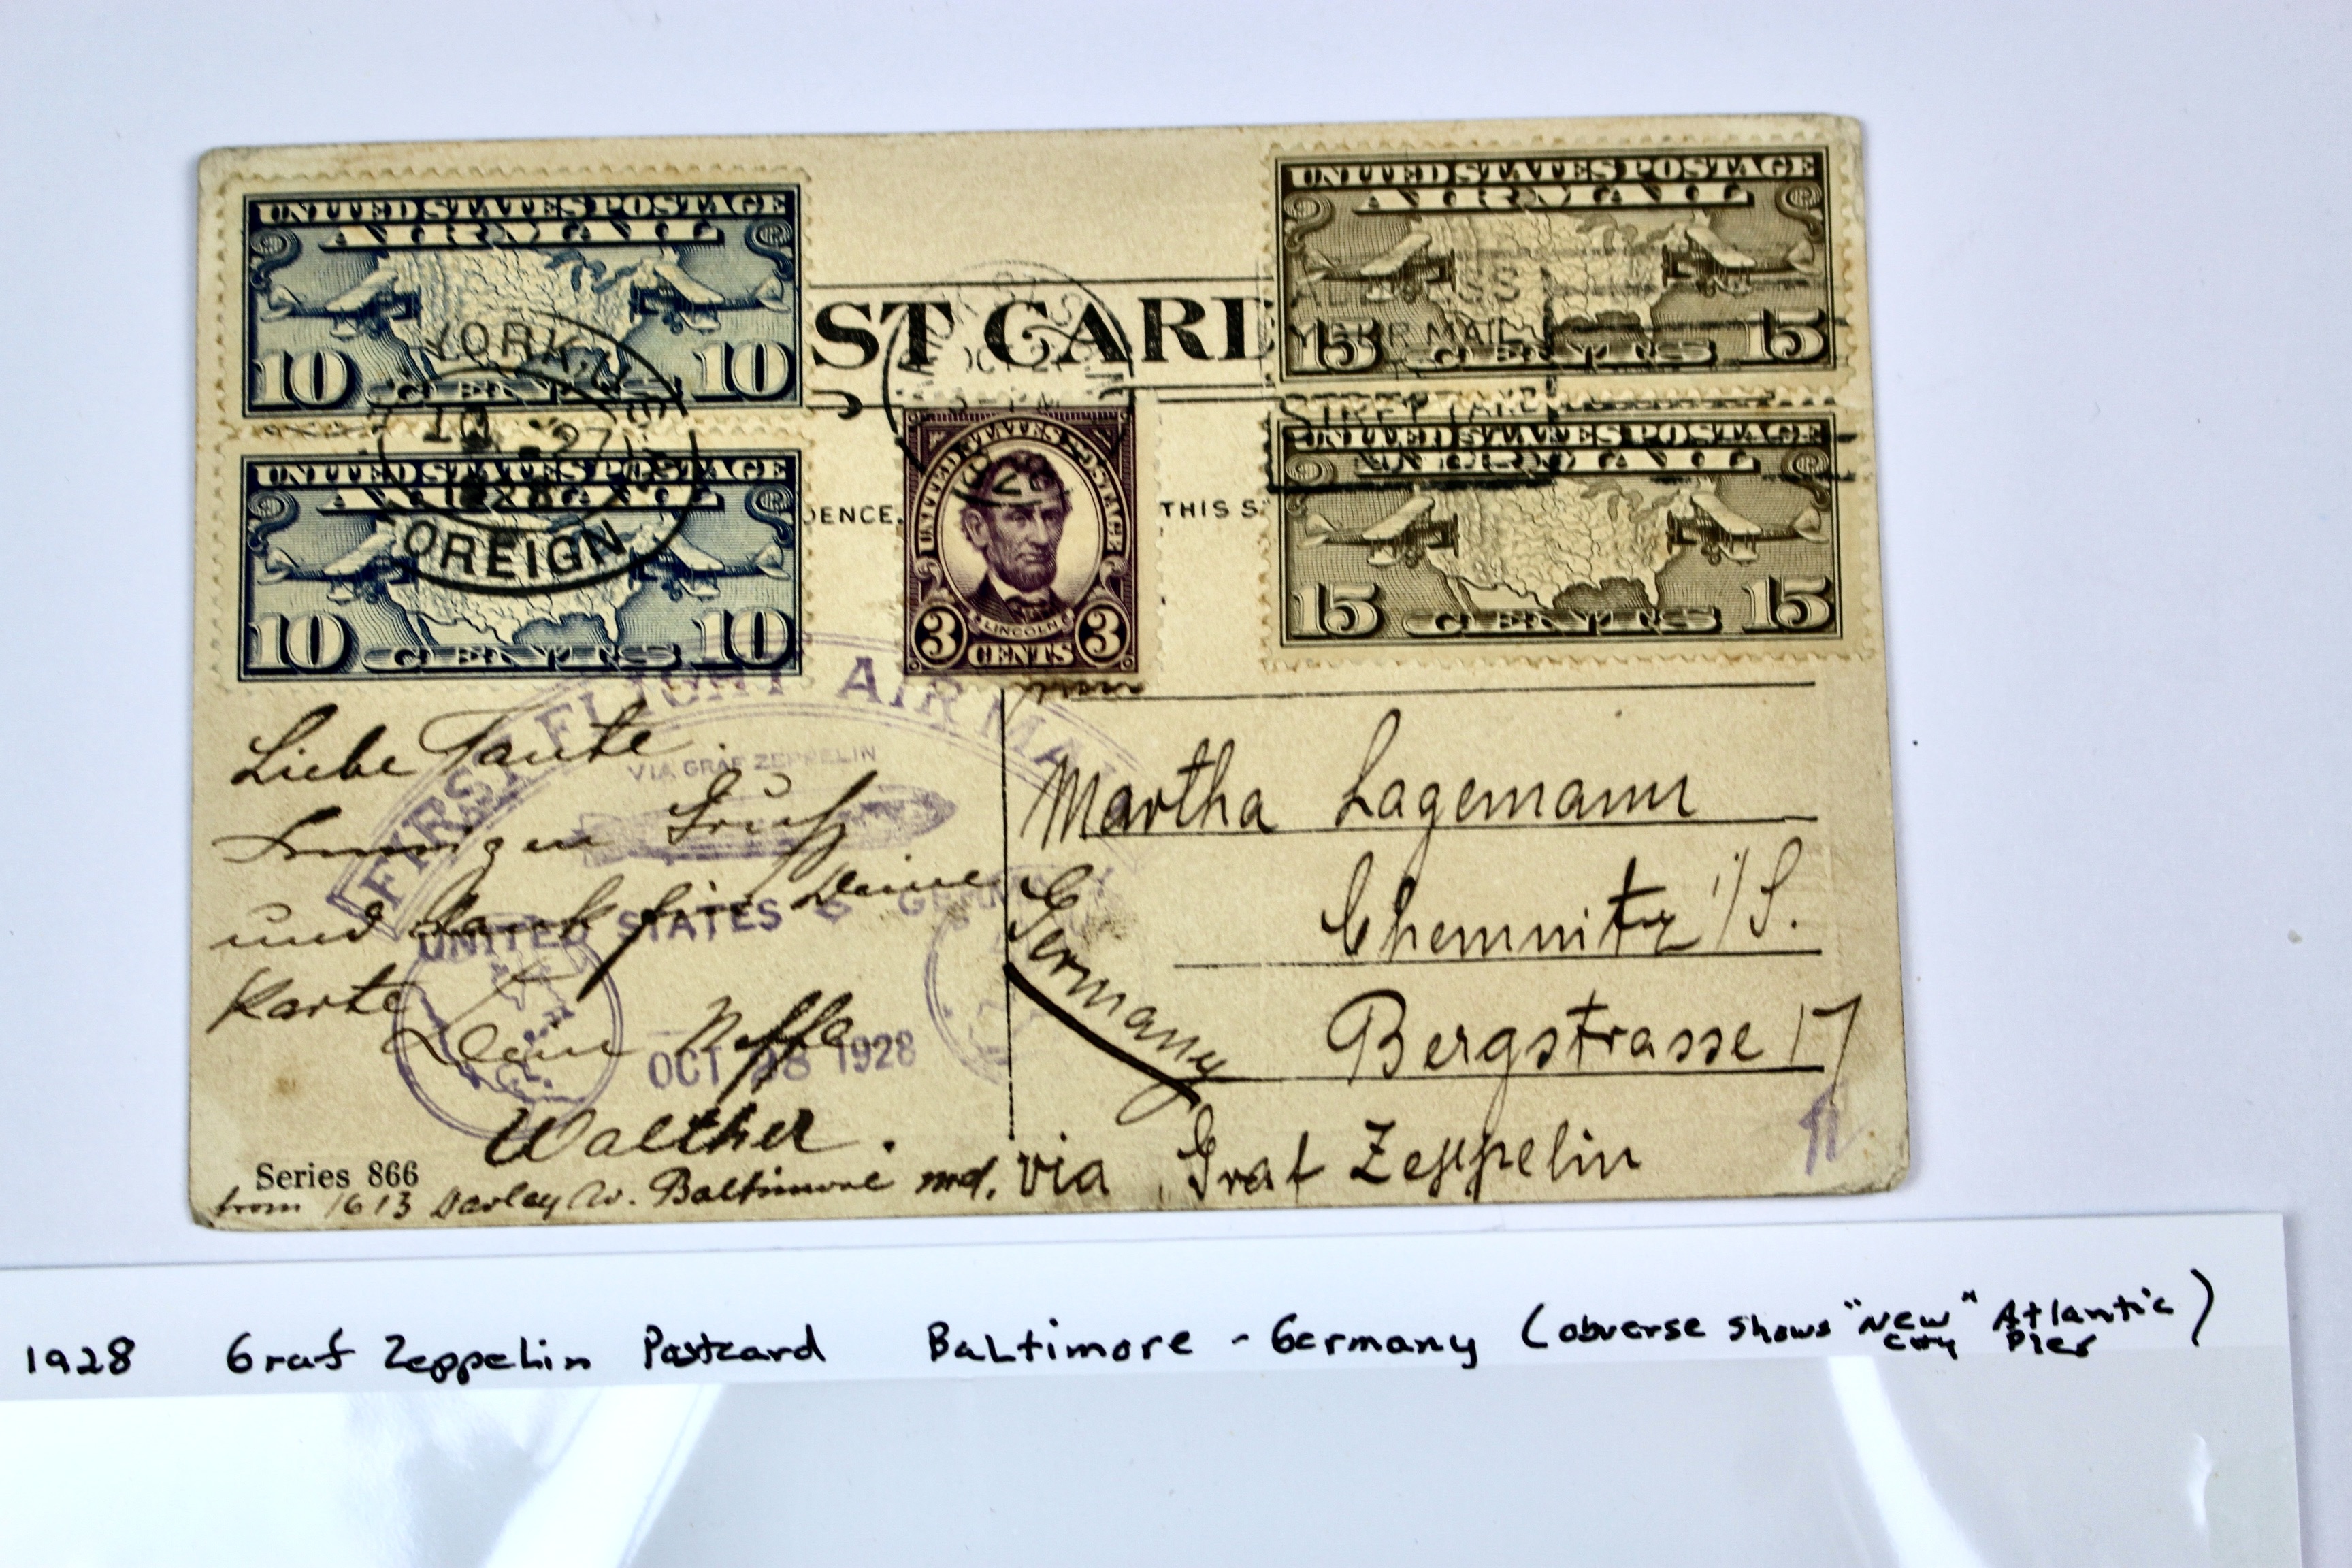 UNITED STATES POSTAGE
AIR MAIL
10 CENTS 10
UNITED STATES POSTAGE
AIR MAIL
10 CENTS 10
YORK, N
10 27
OREIGN
ST CARD
OCT
UNITED STATES POSTAGE
LINCOLN
3 CENTS 3
UNITED STATES POSTAGE
AIR MAIL
15 CENTS 15
UNITED STATES POSTAGE
AIR MAIL
15 CENTS 15
ADDRESS
YOUR MAIL
STREET AND
DENCE.
THIS S
FIRST FLIGHT AIR MAIL
VIA GRAF ZEPPELIN
UNITED STATES GERM
OCT 28 1928
Liebe Tante.
Innigen Gruß
und Dank für Deine
Karte
Dein Neffe
Walther.
Series 866
from 1613 W. Baltimore Md.
Martha Lagemann
Chemnitz i/S.
Bergstrasse 17
Germany
via Graf Zeppelin
1928 Graf Zeppelin Postcard Baltimore - Germany (obverse shows "New" Atlantic City Pier)